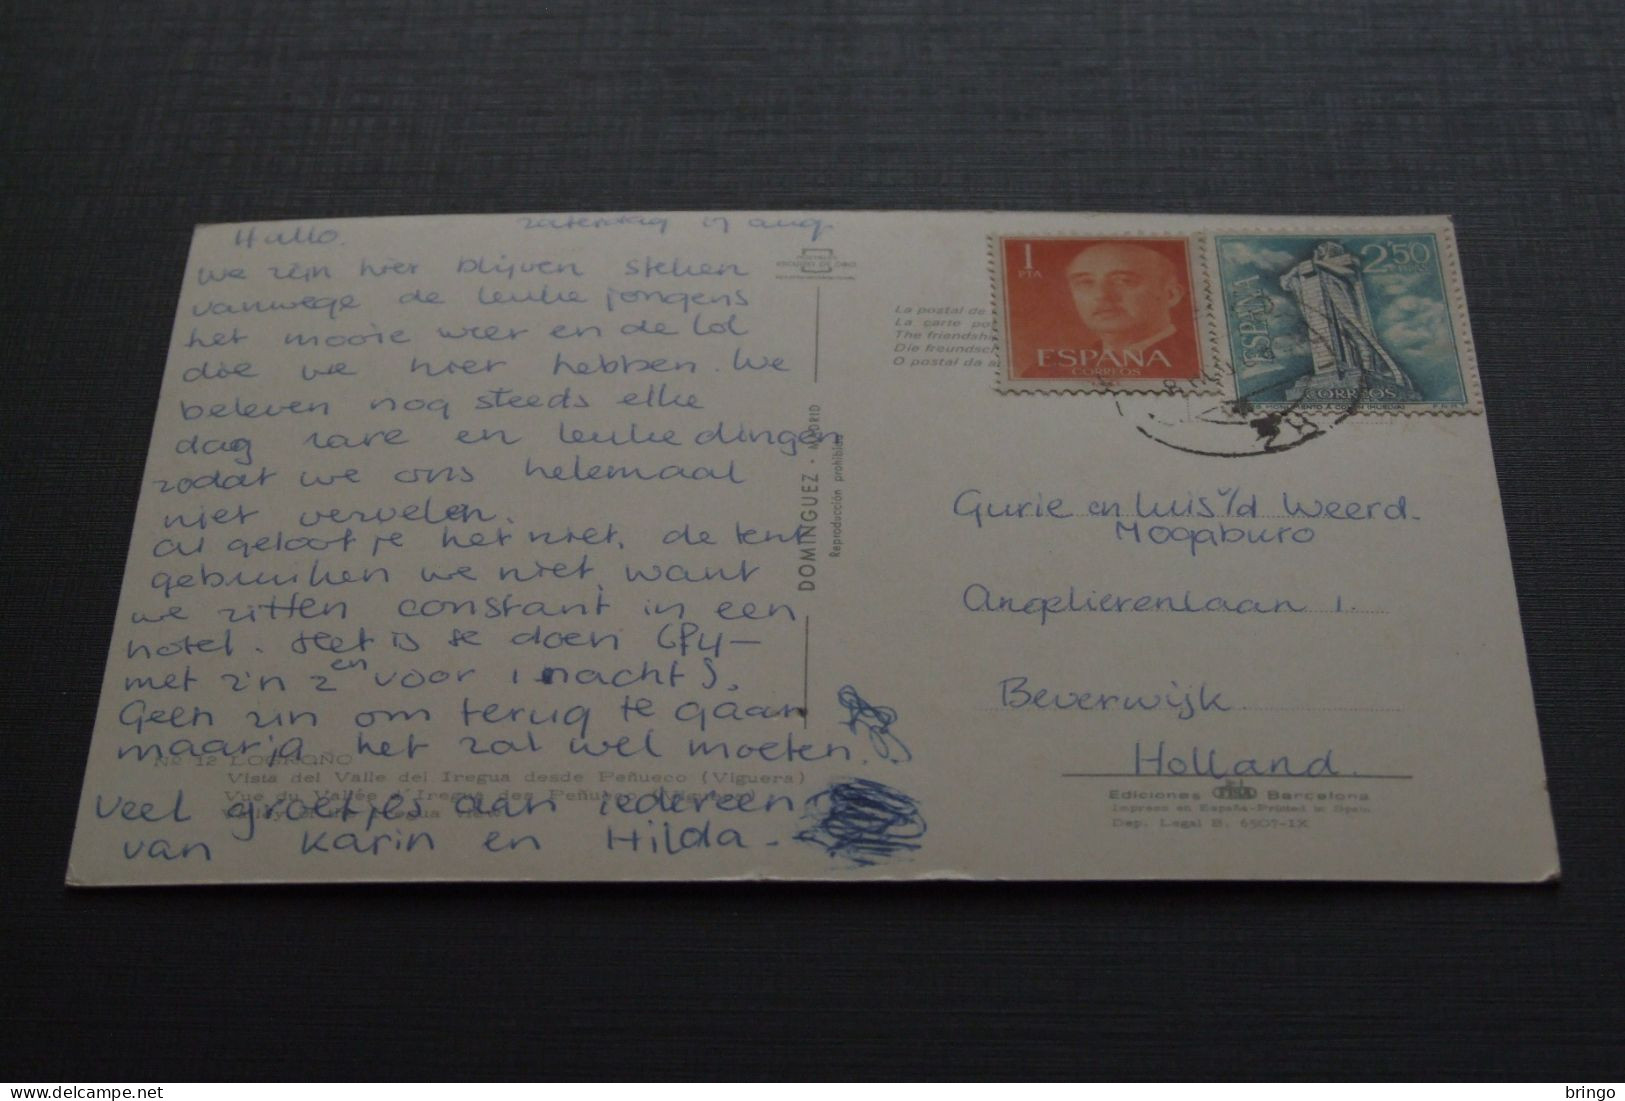 Hallo. zaterdag 17 aug.
we zijn hier blijven steken
vanwege de leuke jongens
het mooie weer en de lol
die we hier hebben. We
beleven nog steeds elke
dag rare en leuke dingen
zodat we ons helemaal
niet vervelen.
Al geloof je het niet, de tent
gebruiken we niet, want
we zitten constant in een
hotel. Het is te doen
met z'n 2en voor 1 nacht).
Geen zin om terug te gaan
maar ja het zal wel moeten.
Veel groetjes aan iedereen
van Karin en Hilda.
No 12 LOGROÑO
Vista del Valle del Iregua desde Peñueco (Viguera)
Vue du Vallée d'Iregua des Peñueco (Viguera)
Valley of the Iregua view
POSTALES
ESCUDO DE ORO
DOMINGUEZ - MADRID
Reproducción prohibida
La postal de
La carte po
The friendshi
Die freundsch
O postal da a
1
PTA
ESPAÑA
CORREOS
2'50
PTAS
ESPAÑA
CORREOS
MONUMENTO A COLON (HUELVA) F.N.M.T.
Gurie en Luis v/d Weerd.
Mogaburo
Angelierenlaan 1.
Beverwijk
Holland.
Ediciones Barcelona
Impreso en España-Printed in Spain
Dep. Legal B. 6507-IX
bringo